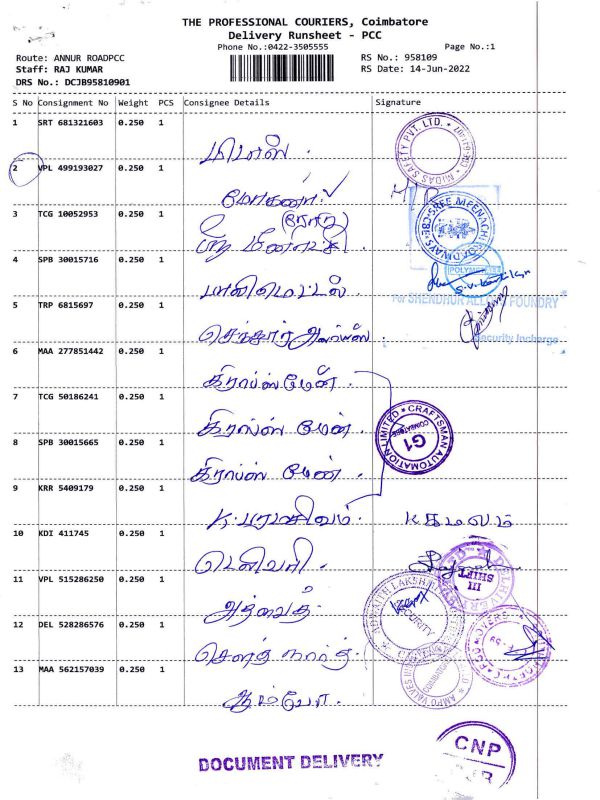 THE PROFESSIONAL COURIERS, Coimbatore
Delivery Runsheet - PCC
Phone No.:0422-3505555
Page No.:1
Route: ANNUR ROADPCC
RS No.: 958109
Staff: RAJ KUMAR
RS Date: 14-Jun-2022
DRS No.: DCJB95810901
S No Consignment No Weight PCS Consignee Details Signature
1 SRT 681321603 0.250 1
மிடாஸ்.
MIDAS SAFETY PVT. LTD.
2 VPL 499193027 0.250 1
மோகனா
3 TCG 10052953 0.250 1
ஸ்ரீ மீனாட்சி
SREE MEENACHI ROADWAYS CBE
4 SPB 30015716 0.250 1
பாலிமெட்டல்
5 TRP 6815697 0.250 1
For SHENDHUR ALLOY FOUNDRY
Security Incharge
செந்தூர் அலாய்ஸ்
6 MAA 277851442 0.250 1
கிராப்ஸ்மேன்.
7 TCG 50186241 0.250 1
கிராப்ஸ் மேன்.
CRAFTSMAN AUTOMATION LIMITED
COIMBATORE
G1
8 SPB 30015665 0.250 1
கிராப்ஸ் மேன்.
9 KRR 5409179 0.250 1
K. பரமசிவம். K கமலம்
10 KDI 411745 0.250 1
டெலிவரி.
III SHIFT
11 VPL 515286250 0.250 1
அத்வைத்
ADVAITH LAKSHMI
SECURITY
12 DEL 528286576 0.250 1
சௌத் கார்கோ
13 MAA 562157039 0.250 1
AMPO VALVES
ஆம்போ.
DOCUMENT DELIVERY
CNP